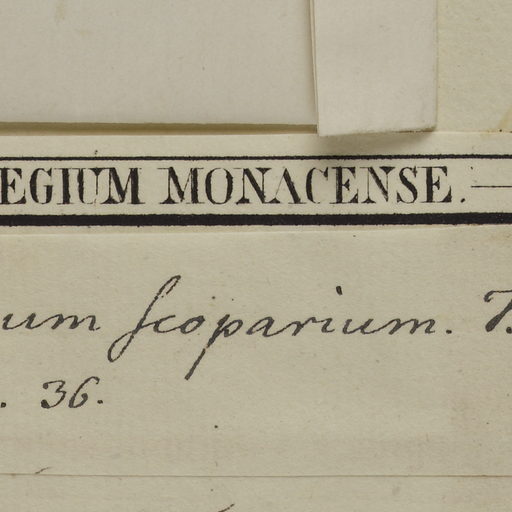 EGIUM MONACENSE.
um scoparium. T.
. 36.